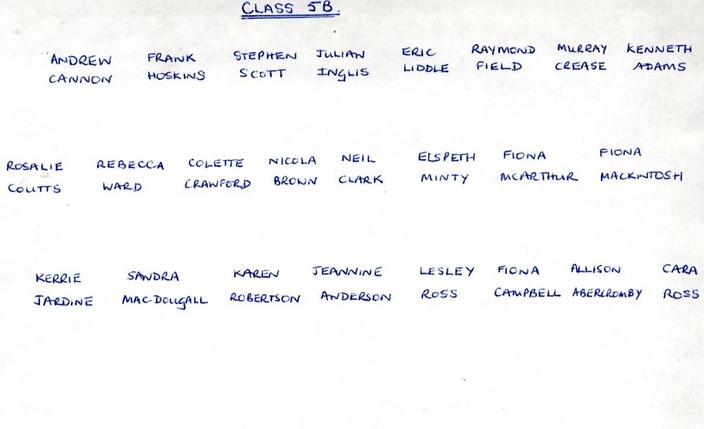 CLASS 5B.
ANDREW FRANK STEPHEN JULIAN ERIC RAYMOND MURRAY KENNETH
CANNON HOSKINS SCOTT INGLIS LIDDLE FIELD CREASE ADAMS
ROSALIE REBECCA COLETTE NICOLA NEIL ELSPETH FIONA FIONA
COUTTS WARD CRAWFORD BROWN CLARK MINTY MCARTHUR MACKINTOSH
KERRIE SANDRA KAREN JEANNINE LESLEY FIONA ALLISON CARA
JARDINE MACDOUGALL ROBERTSON ANDERSON ROSS CAMPBELL ABERCROMBY ROSS